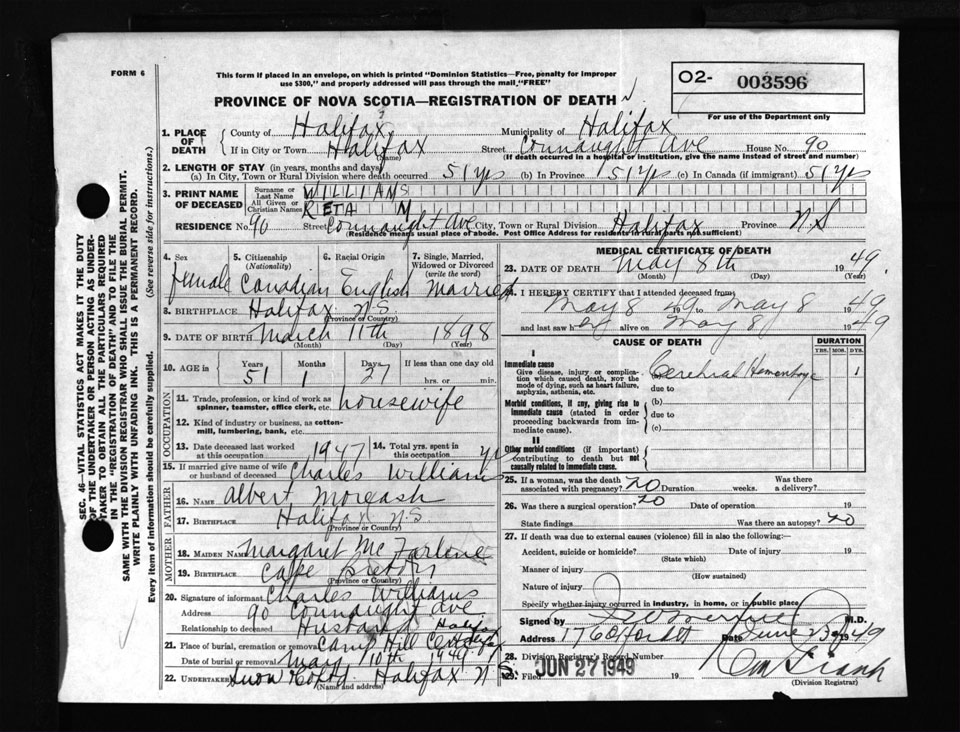 FORM 6
This form if placed in an envelope, on which is printed "Dominion Statistics—Free, penalty for improper
use $300," and properly addressed will pass through the mail "FREE"
O2- 003596
For use of the Department only
PROVINCE OF NOVA SCOTIA—REGISTRATION OF DEATH
1. PLACE OF DEATH
County of Halifax Municipality of Halifax
If in City or Town Halifax (Name) Street Connaught Ave House No. 90
(If death occurred in a hospital or institution, give the name instead of street and number)
2. LENGTH OF STAY (in years, months and days)
(a) In City, Town or Rural Division where death occurred 51 yrs (b) In Province 51 yrs (c) In Canada (if immigrant) 51 yrs
3. PRINT NAME OF DECEASED
Surname or Last Name WILLIAMS
All Given or Christian Names RETA M
RESIDENCE No. 90 Street Connaught Ave City, Town or Rural Division Halifax Province N.S
(Residence means usual place of abode. Post Office Address for residents in rural parts not sufficient)
4. Sex female
5. Citizenship (Nationality) Canadian
6. Racial Origin English
7. Single, Married, Widowed or Divorced (write the word) Married
8. BIRTHPLACE Halifax N.S.
(Province or Country)
9. DATE OF BIRTH March 11th 1898
(Month) (Day) (Year)
10. AGE in Years 51 Months 1 Days 27 If less than one day old
hrs. or min.
OCCUPATION
11. Trade, profession, or kind of work as
spinner, teamster, office clerk, etc. housewife
12. Kind of industry or business, as cotton-
mill, lumbering, bank, etc.
13. Date deceased last worked at this occupation 1947
14. Total yrs. spent in this occupation
15. If married give name of wife
or husband of deceased Charles Williams
FATHER
16. NAME Albert Moreash
17. BIRTHPLACE Halifax N.S.
(Province or Country)
MOTHER
18. MAIDEN NAME Margaret McFarlene
19. BIRTHPLACE Cape Breton
(Province or Country)
20. Signature of informant Charles Williams
Address 90 Connaught Ave
Relationship to deceased Husband Halifax
21. Place of burial, cremation or removal Camp Hill Cem Halifax
Date of burial or removal May 10th 1949
22. UNDERTAKER Snow & Co Ltd. Halifax N.S.
(Name and address)
MEDICAL CERTIFICATE OF DEATH
23. DATE OF DEATH May 8th 1949
(Month) (Day)
24. I HEREBY CERTIFY that I attended deceased from
May 8 1949 to May 8 1949
and last saw her alive on May 8 1949
CAUSE OF DEATH
DURATION
YRS. MOS. DYS.
I
Immediate cause
Give disease, injury or complica-
tion which caused death, NOT the
mode of dying, such as heart failure,
asphyxia, asthenia, etc.
Cerebral Hemorrhage 1
due to
Morbid conditions, if any, giving rise to
immediate cause (stated in order
proceeding backwards from im-
mediate cause).
(b)
due to
(c)
II
Other morbid conditions (if important)
contributing to death but not
causally related to immediate cause.
25. If a woman, was the death
associated with pregnancy? No Duration weeks. Was there a delivery?
26. Was there a surgical operation? No Date of operation 19
State findings Was there an autopsy? No
27. If death was due to external causes (violence) fill in also the following:
Accident, suicide or homicide? Date of injury 19
(State which)
Manner of injury
(How sustained)
Nature of injury
Specify whether injury occurred in industry, in home, or in public place
Signed by M.D.
Address 176 Oxford St Date June 1949
28. Division Registrar's Record Number
29. Filed JUN 27 1949 19
(Division Registrar)
SEC. 46—VITAL STATISTICS ACT MAKES IT THE DUTY
OF THE UNDERTAKER OR PERSON ACTING AS UNDER-
TAKER TO OBTAIN ALL THE PARTICULARS REQUIRED
IN THE "REGISTRATION OF DEATH" AND TO FILE THE
SAME WITH THE DIVISION REGISTRAR WHO SHALL ISSUE THE BURIAL PERMIT.
WRITE PLAINLY WITH UNFADING INK. THIS IS A PERMANENT RECORD.
Every item of information should be carefully supplied. (See reverse side for instructions.)